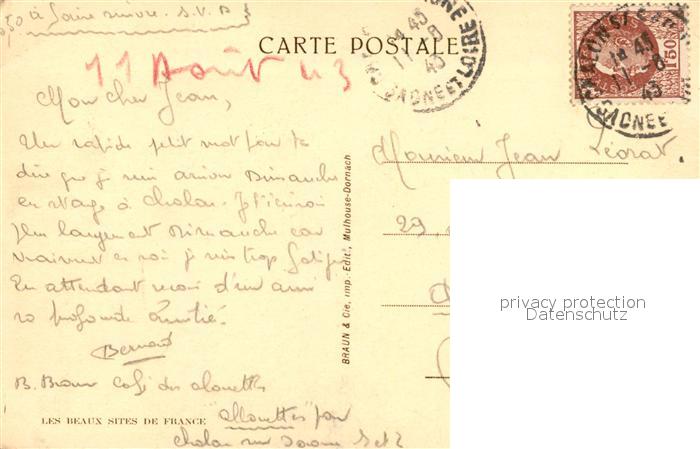 à faire suivre. S.V.P
CARTE POSTALE
11 Août 43
Mon cher Jean,
Un rapide petit mot pour te
dire que je suis arrivé Dimanche
en stage à Chalon. Je t'écrirai
plus longuement Dimanche car
vraiment ce soir je suis trop fatigué
En attendant reçois d'un ami
sa profonde Amitié.
Bernard
B. Café des alouettes
"allouettes" par
LES BEAUX SITES DE FRANCE
Chalon sur Saone S et L
BRAUN & Cie, imp.-Édit., Mulhouse-Dornach
SAONE ET LOIRE
1F50
Monsieur Jean
29,
privacy protection
Datenschutz